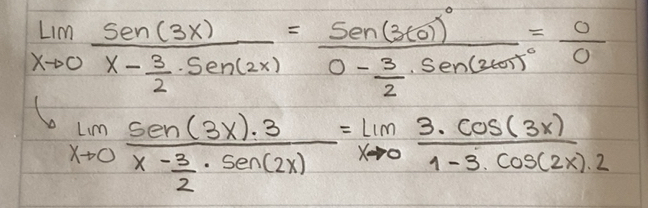 Lim sen(3x) / x - 3/2 . Sen(2x) = Sen(3(0))⁰ / 0 - 3/2 . Sen(2(0))⁰ = 0/0
x→0
Lim sen(3x).3 / x - 3/2 . Sen(2x) = Lim 3. cos(3x) / 1-3. cos(2x).2
x→0 x→0